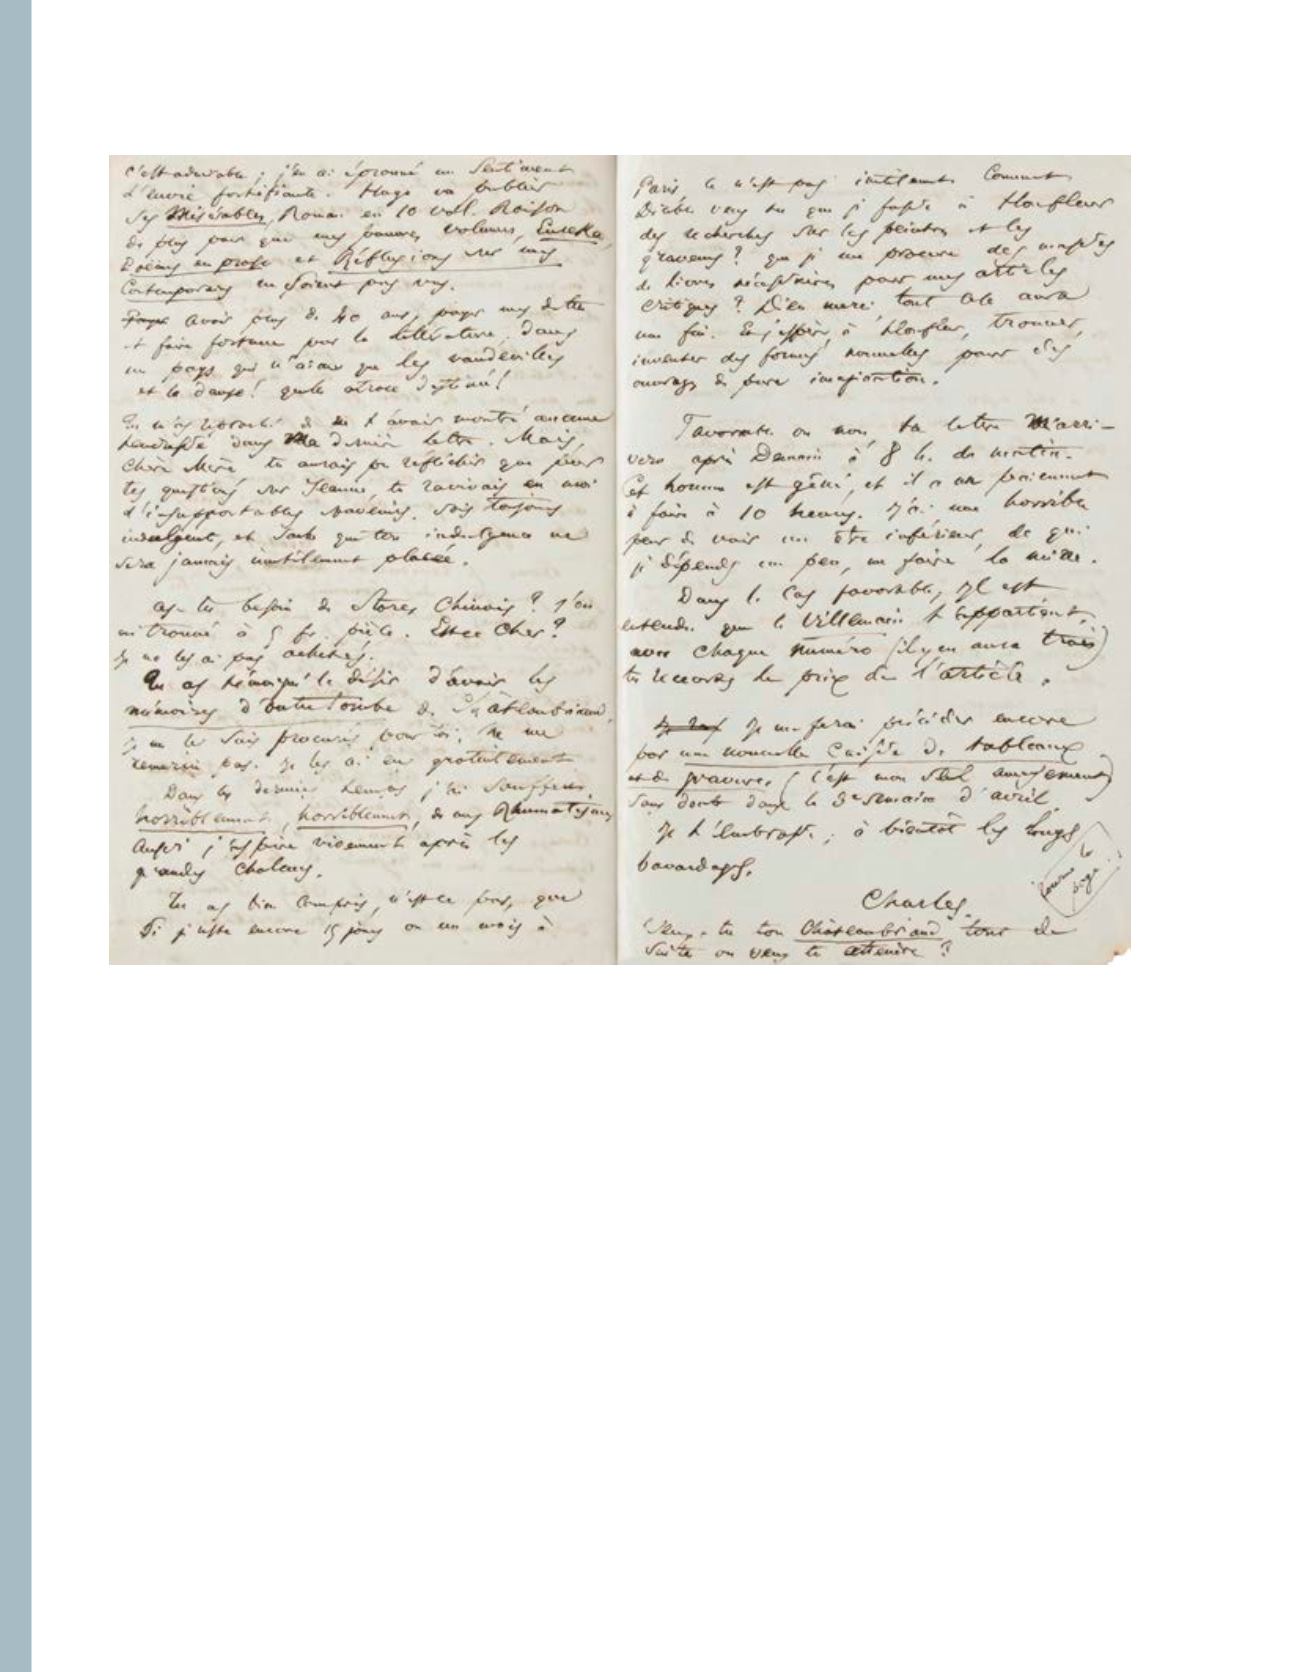 c'est admirable ; j'en ai éprouvé un sentiment
d'envie fortifiante. Hugo va publier
ses Misérables, Roman en 10 vol. Raison
de plus pour que mes pauvres volumes, Eureka,
Poèmes en prose et Réflexions sur mes
Contemporains ne soient pas vus.
Payer avoir plus de 40 ans, payer mes dettes
et faire fortune par la littérature, dans
un pays qui n'aime que les vaudevilles
et la danse ! quelle atroce destinée !
Tu m'as reproché de ne t'avoir montré aucune
tendresse dans ma dernière lettre. Mais,
chère Mère, tu aurais pu réfléchir que par
tes questions sur Jeanne, tu ravivais en moi
d'insupportables souvenirs. Sois toujours
indulgente, et sache que ton indulgence ne
sera jamais inutilement placée.
as-tu besoin de Stores Chinois ? J'en
ai trouvé à 5 fr. pièce. Est-ce cher ?
Je ne les ai pas achetés.
Tu as témoigné le désir d'avoir les
mémoires d'outre Tombe de Châteaubriand,
je me les suis procurés pour toi ; ne me
remercie pas. Je les ai eus gratuitement
Dans les derniers temps j'ai souffert,
horriblement, horriblement, de mes Rhumatismes
Aussi j'aspire vivement après les
grandes chaleurs.
Tu as bien compris, n'est-ce pas, que
si je reste encore 15 jours ou un mois à
Paris, ce n'est pas inutilement. Comment
Diable veux-tu que je fasse à Honfleur
des recherches sur les peintres et les
graveurs ? que je me procure des masses
de livres nécessaires pour mes articles
critiques ? Dieu merci, tout cela aura
une fin. Et j'espère, à Honfleur, trouver,
inventer des formes nouvelles pour des
ouvrages de pure imagination.
Favorable ou non, ta lettre m'arri-
vera après Demain à 8 h. du matin.
Cet homme est gêné, et il a un paiement
à faire à 10 heures. J'ai une horrible
peur de voir un être inférieur, de qui
je dépends un peu, me faire la mine.
Dans le cas favorable, il est
entendu que le Villemain t'appartient,
avec chaque numéro (il y en aura trois)
tu recevras le prix de l'article.
Je me ferai précéder encore
par une nouvelle Caisse de tableaux
et de gravures (c'est mon seul amusement)
sans doute dans la 3e semaine d'avril.
Je t'embrasse ; à bientôt les longs
bavardages.
Charles.
Veux-tu ton Châteaubriand tout de
suite ou veux-tu attendre ?
Tournez la page